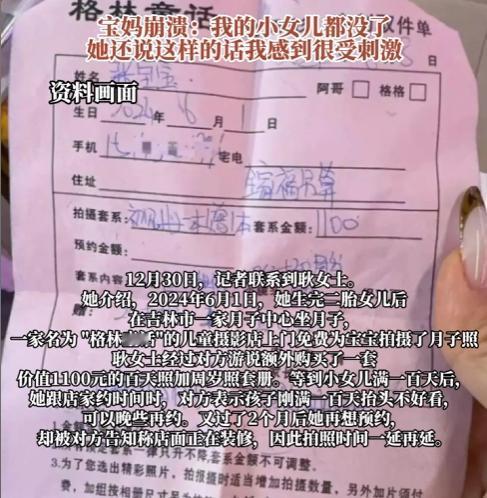 宝妈崩溃：我的小女儿都没了
她还说这样的话我感到很受刺激
格林童话
取件单
日
资料画面
姓名
阿哥
格格
生日 2024年6月1日
手机
宅电
住址
拍摄套系：
套系金额：1100
预约金额：
套系内容
12月30日，记者联系到耿女士。
她介绍，2024年6月1日，她生完二胎女儿后
在吉林市一家月子中心坐月子，
一家名为“格林
”的儿童摄影店上门免费为宝宝拍摄了月子照
耿女士经过对方游说额外购买了一套
价值1100元的百天照加周岁照套册。等到小女儿满一百天后，
她跟店家约时间时，对方表示孩子刚满一百天抬头不好看，
可以晚些再约。又过了2个月后她再想预约，
却被对方告知称店面正在装修，因此拍照时间一延再延。
一律只升不降,套系金额不可调整。
3.为了您选出精彩照片，拍摄时适当增加拍摄数量，另外加片须付
费，加组按相册尺寸另